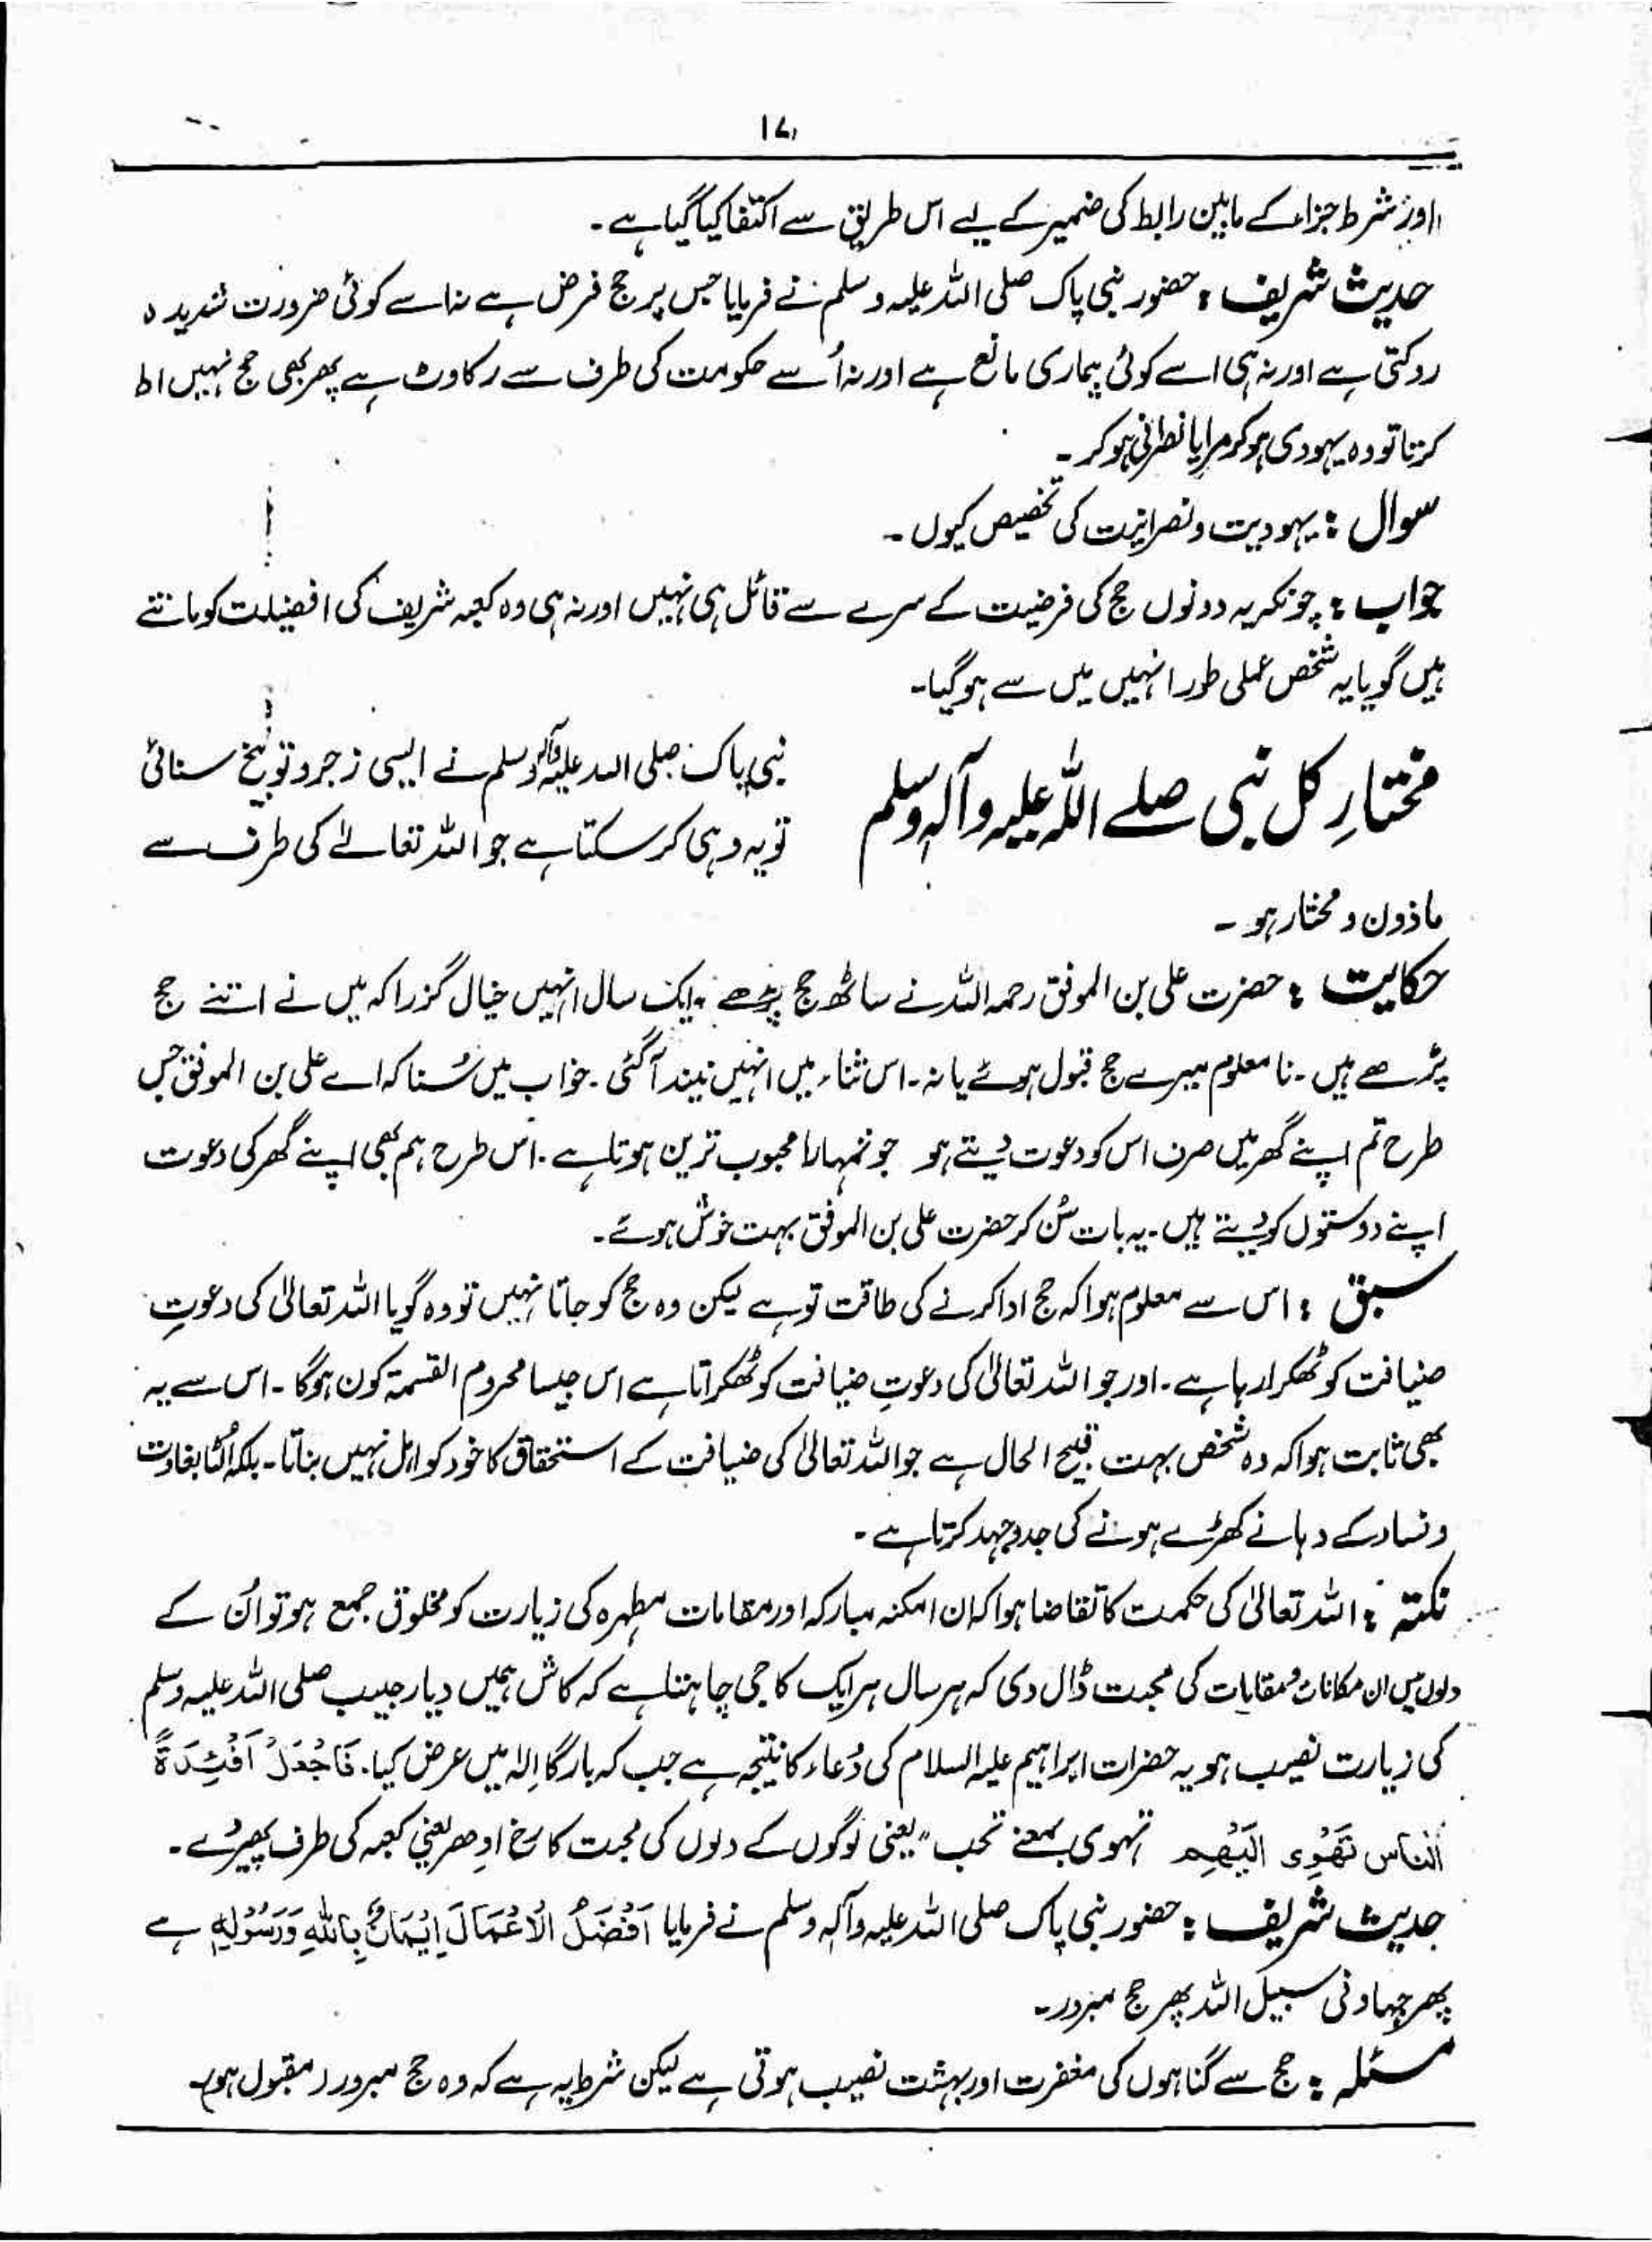 ۱۷
اور شرط جزاء کے مابین رابط کی ضمیر کے لیے اس طریق سے اکتفا کیا گیا ہے۔
حدیث شریف : حضور نبی پاک صلی اللہ علیہ وسلم نے فرمایا جس پر حج فرض ہے نہ اسے کوئی ضرورت شدیدہ
روکتی ہے اور نہ ہی اسے کوئی بیماری مانع ہے اور نہ اُسے حکومت کی طرف سے رکاوٹ ہے پھر بھی حج نہیں ادا
کرتا تو وہ یہودی ہو کر مرا یا نصرانی ہو کر۔
سوال : یہودیت و نصرانیت کی تخصیص کیوں۔
جواب : چونکہ یہ دونوں حج کی فرضیت کے سرے سے قائل ہی نہیں اور نہ ہی وہ کعبہ شریف کی افضیلت کو مانتے
ہیں گویا یہ شخص عملی طور انہیں میں سے ہو گیا۔
مختارِ کل نبی صلے اللہ علیہ وآلہ وسلم
نبی پاک صلی اللہ علیہ وآلہ وسلم نے ایسی زجر و توبیخ سنائی
تو یہ وہی کر سکتا ہے جو اللہ تعالےٰ کی طرف سے
ماذون و مختار ہو۔
حکایت : حضرت علی بن الموفق رحمہ اللہ نے ساٹھ حج پڑھے ۔ ایک سال انہیں خیال گزرا کہ میں نے اتنے حج
پڑھے ہیں ۔ نا معلوم میرے حج قبول ہوئے یا نہ ۔ اس اثناء میں انہیں نیند آ گئی ۔ خواب میں سُنا کہ اے علی بن الموفق جس
طرح تم اپنے گھر میں صرف اس کو دعوت دیتے ہو جو تمہارا محبوب ترین ہوتا ہے ۔ اس طرح ہم بھی اپنے گھر کی دعوت
اپنے دوستوں کو دیتے ہیں ۔ یہ بات سُن کر حضرت علی بن الموفق بہت خوش ہوئے۔
سبق : اس سے معلوم ہوا کہ حج ادا کرنے کی طاقت تو ہے لیکن وہ حج کو جاتا نہیں تو وہ گویا اللہ تعالیٰ کی دعوتِ
ضیافت کو ٹھکرا رہا ہے ۔ اور جو اللہ تعالیٰ کی دعوتِ ضیافت کو ٹھکراتا ہے اس جیسا محروم القسمۃ کون ہوگا ۔ اس سے یہ
بھی ثابت ہوا کہ وہ شخص بہت قبیح الحال ہے جو اللہ تعالیٰ کی ضیافت کے استحقاق کا خود کو اہل نہیں بناتا ۔ بلکہ اُلٹا بغاوت
و فساد کے دہانے کھڑے ہونے کی جدوجہد کرتا ہے۔
نکتہ : اللہ تعالیٰ کی حکمت کا تقاضا ہوا کہ ان امکنہ مبارکہ اور مقامات مطہرہ کی زیارت کو مخلوق جمع ہو تو اُن کے
دلوں میں ان مکانات و مقامات کی محبت ڈال دی کہ ہر سال ہر ایک کا جی چاہتا ہے کہ کاش ہمیں دیارِ حبیب صلی اللہ علیہ وسلم
کی زیارت نصیب ہو یہ حضرات ابراہیم علیہ السلام کی دُعاء کا نتیجہ ہے جب کہ بارگاہِ الٰہ میں عرض کیا ۔ فَاجْعَلْ اَفْئِدَةً
النَّاس تَهْوِی اِلَیْهِم تہوی بمعنے تحب " یعنی لوگوں کے دلوں کی محبت کا رخ اِدھر یعنی کعبہ کی طرف پھیر دے۔
حدیث شریف : حضور نبی پاک صلی اللہ علیہ وآلہ وسلم نے فرمایا اَفْضَلُ الْاَعْمَالَ اِیْمَانٌ بِاللهِ وَرَسُوْلِهٖ ہے
پھر جہاد فی سبیل اللہ پھر حج مبرور۔
مسئلہ : حج سے گناہوں کی مغفرت اور بہشت نصیب ہوتی ہے لیکن شرط یہ ہے کہ وہ حج مبرور ر مقبول ہو۔